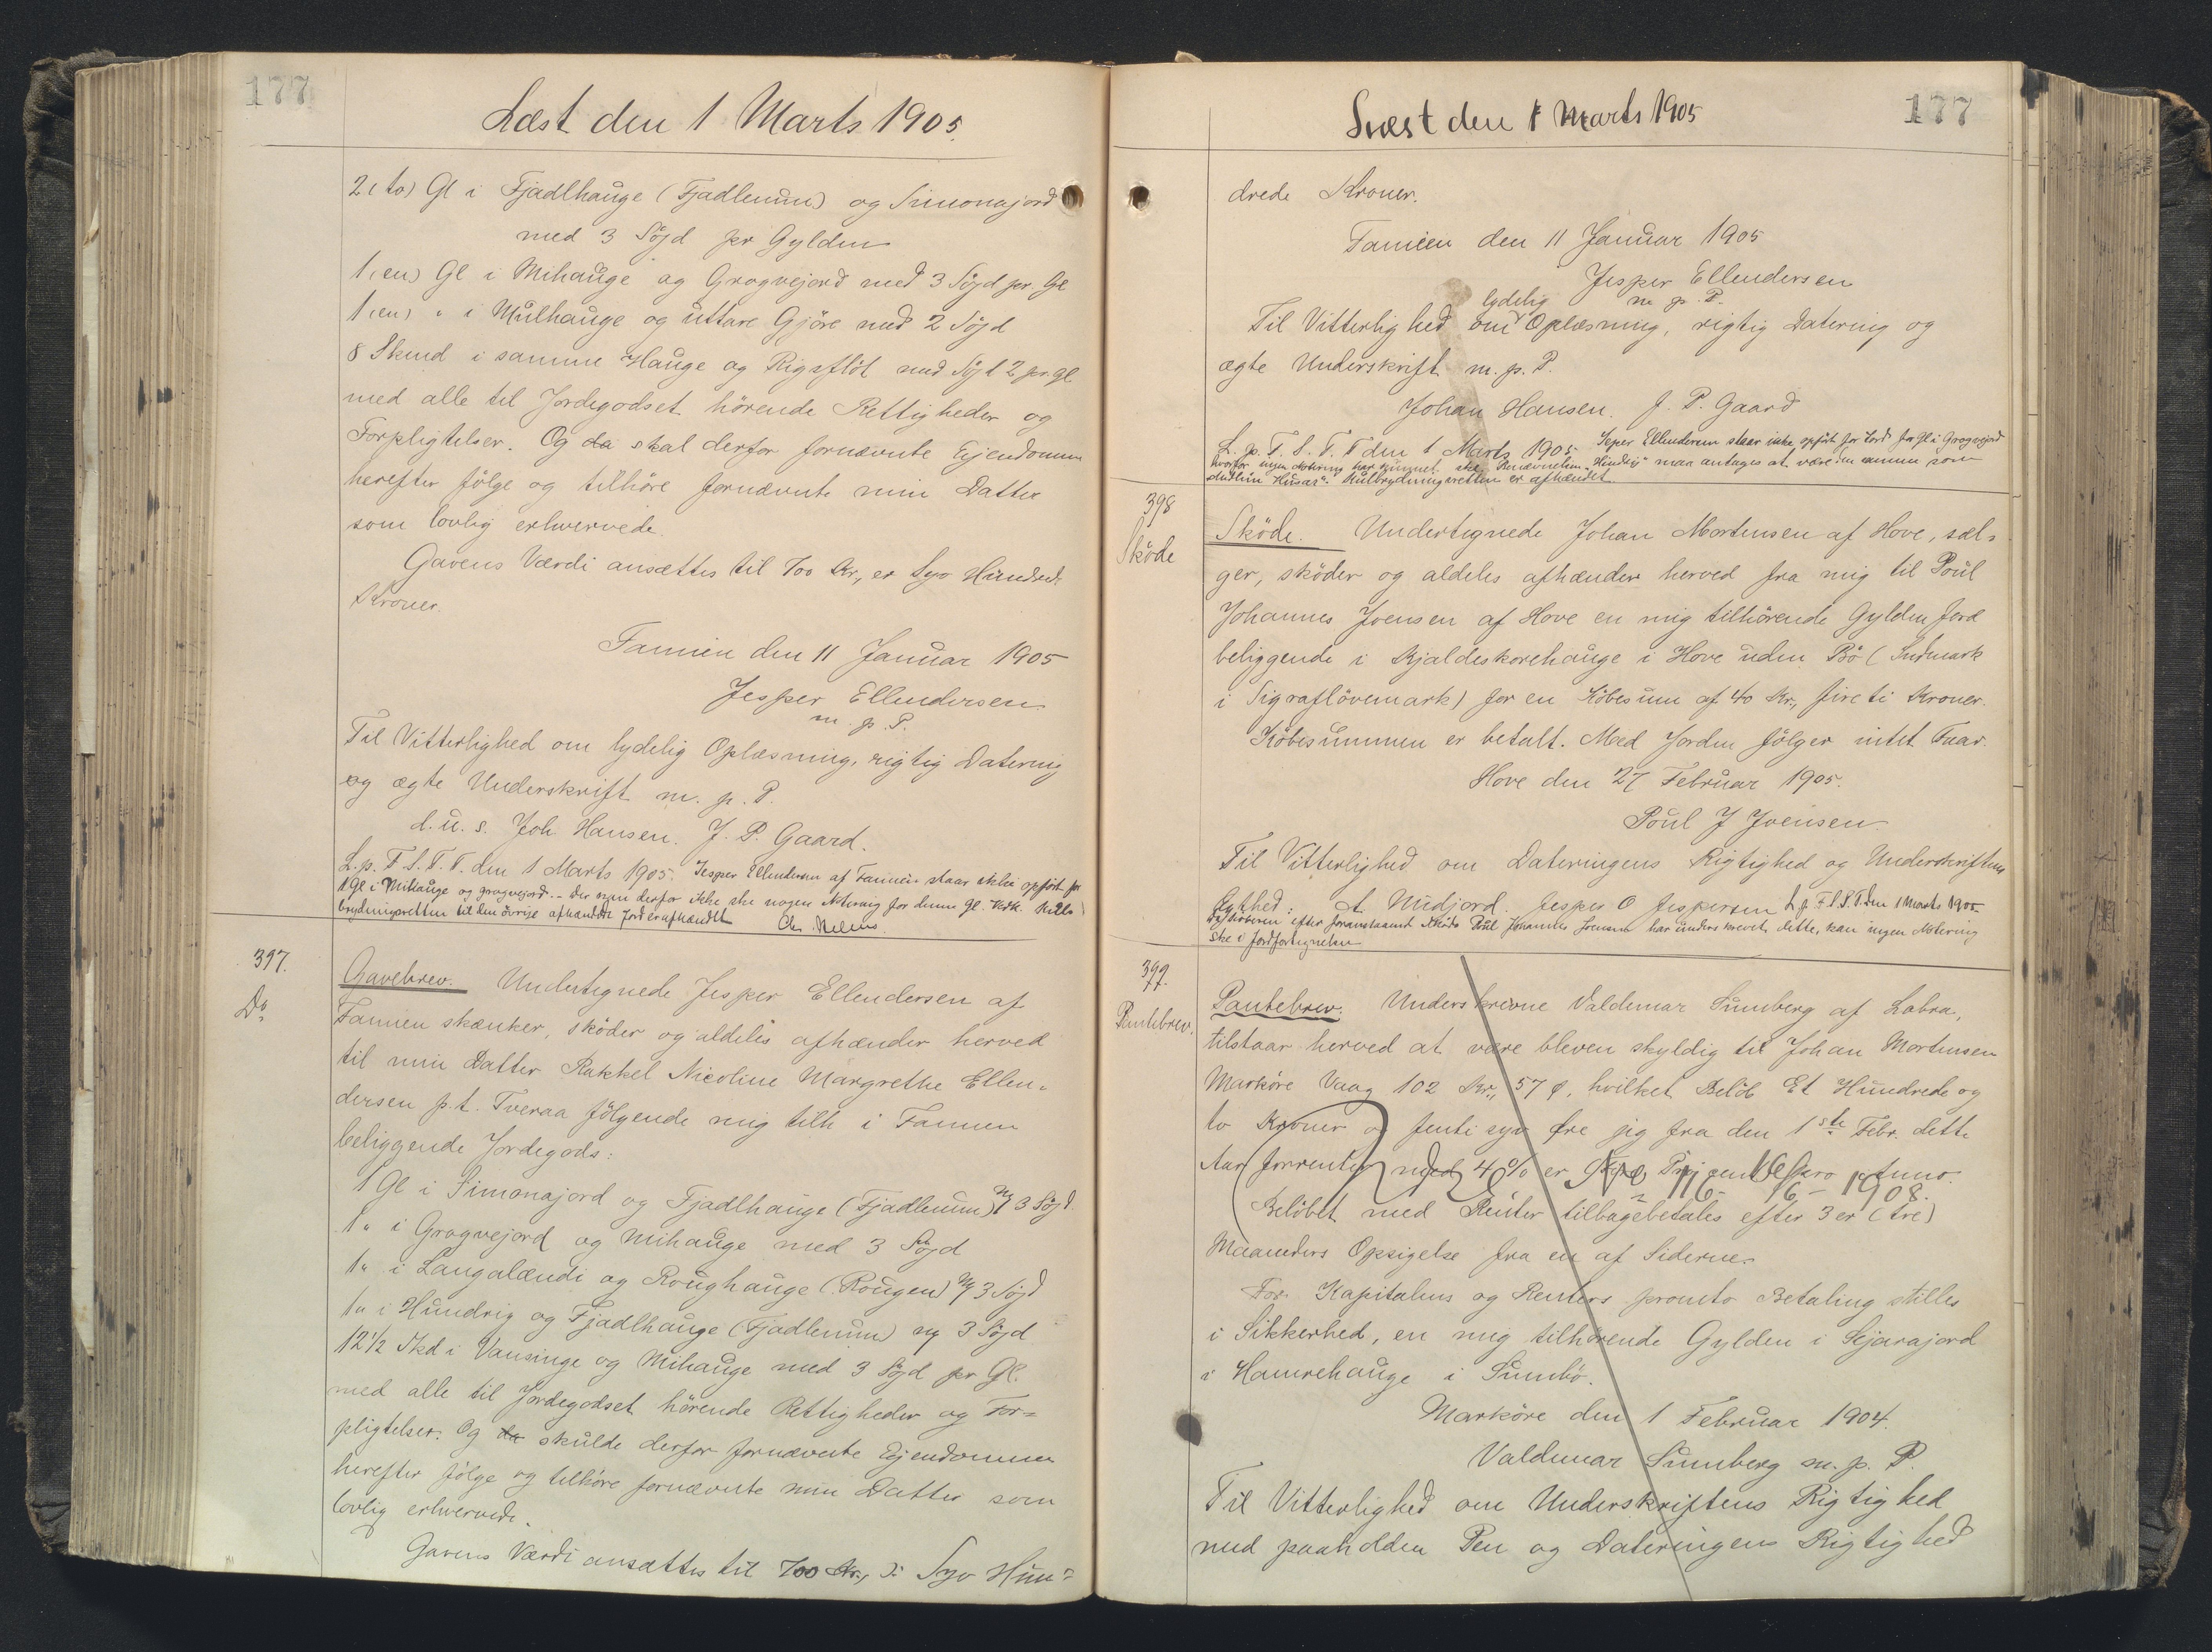 177
Læst den 1 Marts 1905.
2 (to) Gl i Fjadlhauge (Fjadlenum) og Simonajord
med 3 Söjd pr Gylden
1 (en) Gl i Mihauge og Grogvejord med 3 Söjd pr. Gl
1 (en) " i Mulhauge og uttare Gjöre med 2 Söjd
8 Skind i samme Hauge og Rigaflöt med Söjd 2 pr. gl
med alle til Jordegodset hörende Rettigheder og
Forpligtelser. Og da skal derfor fornævnte Ejendomme
herefter fölge og tilhöre fornævnte min Datter
som lovlig erhvervede.
Gavens Værdi ansættes til 700 Kr, er Syv Hundrede
Kroner.
Famien den 11 Januar 1905
Jesper Ellendersen
m. p. P.
Til Vitterlighed om lydelig Oplæsning, rigtig Datering
og ægte Underskrift m. p. P.
d. u. s. Joh Hansen. J. P. Gaard.
L. p. F. S. T. T. den 1 Marts 1905. Jesper Ellendersen af Famien staar ikke opfört for
1 Gl i Mihauge og grogvejord. - Der kan derfor ikke ske nogen Notering for denne Gl.
brydningsretten til den övrige afhændede Jord er afhændet
397.
Do
Gavebrev. Undertegnede Jesper Ellendersen af
Famien skænker, sköder og aldeles afhænder herved
til min Datter Rakkel Nicoline Margrethe Ellen-
dersen p.t. Tveraa fölgende mig tilh i Famien
beliggende Jordegods:
1 Gl i Simonajord og Fjadlhauge (Fjadlenum) 3 Söjd
1 " i Grogvejord og Mihauge med 3 Söjd
1 " i Langalændi og Roughauge (Rougen) 3 Söjd
1 " i Hundrig og Fjadlhauge (Fjadlenum) 3 Söjd
12 1/2 Skd i Vansinge og Mihauge med 3 Söjd pr Gl.
med alle til Jordegodset hörende Rettigheder og For-
pligtelser. Og da skulde derfor fornævnte Ejendomme
herefter fölge og tilhöre fornævnte min Datter som
lovlig erhvervede.
Gavens Værdi ansættes til 700 Kr., Syv Hun-
177
Læst den 1 Marts 1905
drede Kroner.
Famien den 11 Januar 1905
Jesper Ellendersen
m. p. P.
lydelig
Til Vitterlighed om Oplæsning, rigtig Datering og
ægte Underskrift m. p. P.
Johan Hansen. J. P. Gaard
L. p. F. S. T. T den 1 Marts 1905. Jesper Ellendersen staar ikke opfört for Jord for Gl i Grogvejord
hvorfor ingen Notering har kunnet ske. "Hundrig" maa antages at være den samme som
"Husar". Kulbrydningsretten er afhændet
398
Sköde
Sköde. Undertegnede Johan Mortensen af Hove, sæl-
ger, sköder og aldeles afhænder herved fra mig til Poul
Johannes Joensen af Hove en mig tilhörende Gylden Jord
beliggende i Kjaldeskorehauge i Hove uden Bö (Indmark
i Sigraflövemark) for en Köbesum af 40 Kr., fireti Kroner.
Köbesummen er betalt. Med Jorden fölger intet Faar.
Hove den 27 Februar 1905.
Poul J Joensen
Til Vitterlighed om Dateringens Rigtighed og Underskriftens
Ægthed: A. Nidjord. Jesper O Jespersen L. p. F. S. T. den 1 Marts 1905.
efter foranstaaende Sköde Poul Johannes Joensen har underskrevet dette, kan ingen Notering
ske i Jordfortegnelsen
399.
Pantebrev.
Pantebrev. Underskrevne Valdemar Sumberg af Labra,
tilstaar herved at være bleven skyldig til Johan Mortensen
Marköre Vaag 102 Kr., 57 ø, hvilket Belöb Et Hundrede og
to Kroner og femti syv Öre jeg fra den 1ste Febr. dette
Aar forrenter med 4% er fire Procent pro Anno.
1908.
Belöbet med Renter tilbagebetales efter 3 er (tre)
Maaneders Opsigelse fra en af Siderne.
For Kapitalens og Renters promto Betaling stilles
i Sikkerhed, en mig tilhörende Gylden i Sejarajord
i Hamrehauge i Sumbö.
Marköre den 1 Februar 1904.
Valdemar Sumberg m. p. P.
Til Vitterlighed om Underskriftens Rigtighed
med paaholden Pen og Dateringens Rigtighed